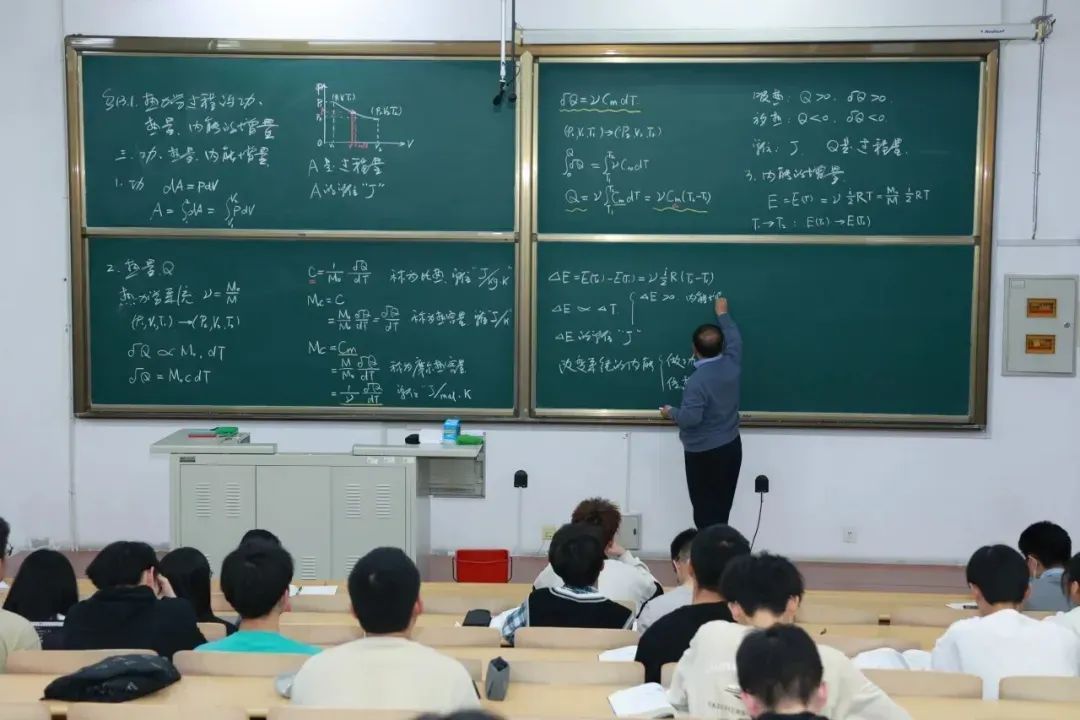 §13.1. 热力学过程的功、
热量、内能的增量
三. 功、热量、内能增量
1. 功 dA = PdV
A = ∫dA = ∫PdV
P
(P₁V₁T₁)
(P₂V₂T₂)
V
A是过程量
A的单位"J"
2. 热量Q
热力学系统 ν = M₀/M
(P₁,V₁,T₁) → (P₂,V₂,T₂)
đQ ∝ M₀, dT
đQ = M₀cdT
C = 1/M₀ đQ/dT 称为比热, 单位"J/kg·K"
Mc = C
= M₀/M₀ đQ/dT = đQ/dT 称为热容量, 单位J/K
Mc = Cm
= M/M₀ đQ/dT 称为摩尔热容量
= 1/ν đQ/dT 单位"J/mol·K
đQ = νCmdT
(P₁V₁T₁) → (P₂V₂T₂)
∫đQ = ∫νCmdT
Q = ν∫CmdT = νCm(T₂-T₁)
吸热: Q>0, đQ>0
放热: Q<0, đQ<0
单位: J, Q是过程量
3. 内能的增量
E = E(T) = ν i/2 RT = M₀/M i/2 RT
T₁→T₂: E(T₁)→E(T₂)
ΔE = E(T₂)-E(T₁) = ν i/2 R(T₂-T₁)
ΔE ∝ ΔT
ΔE>0 内能增
ΔE的单位"J"
改变系统的内能
做功